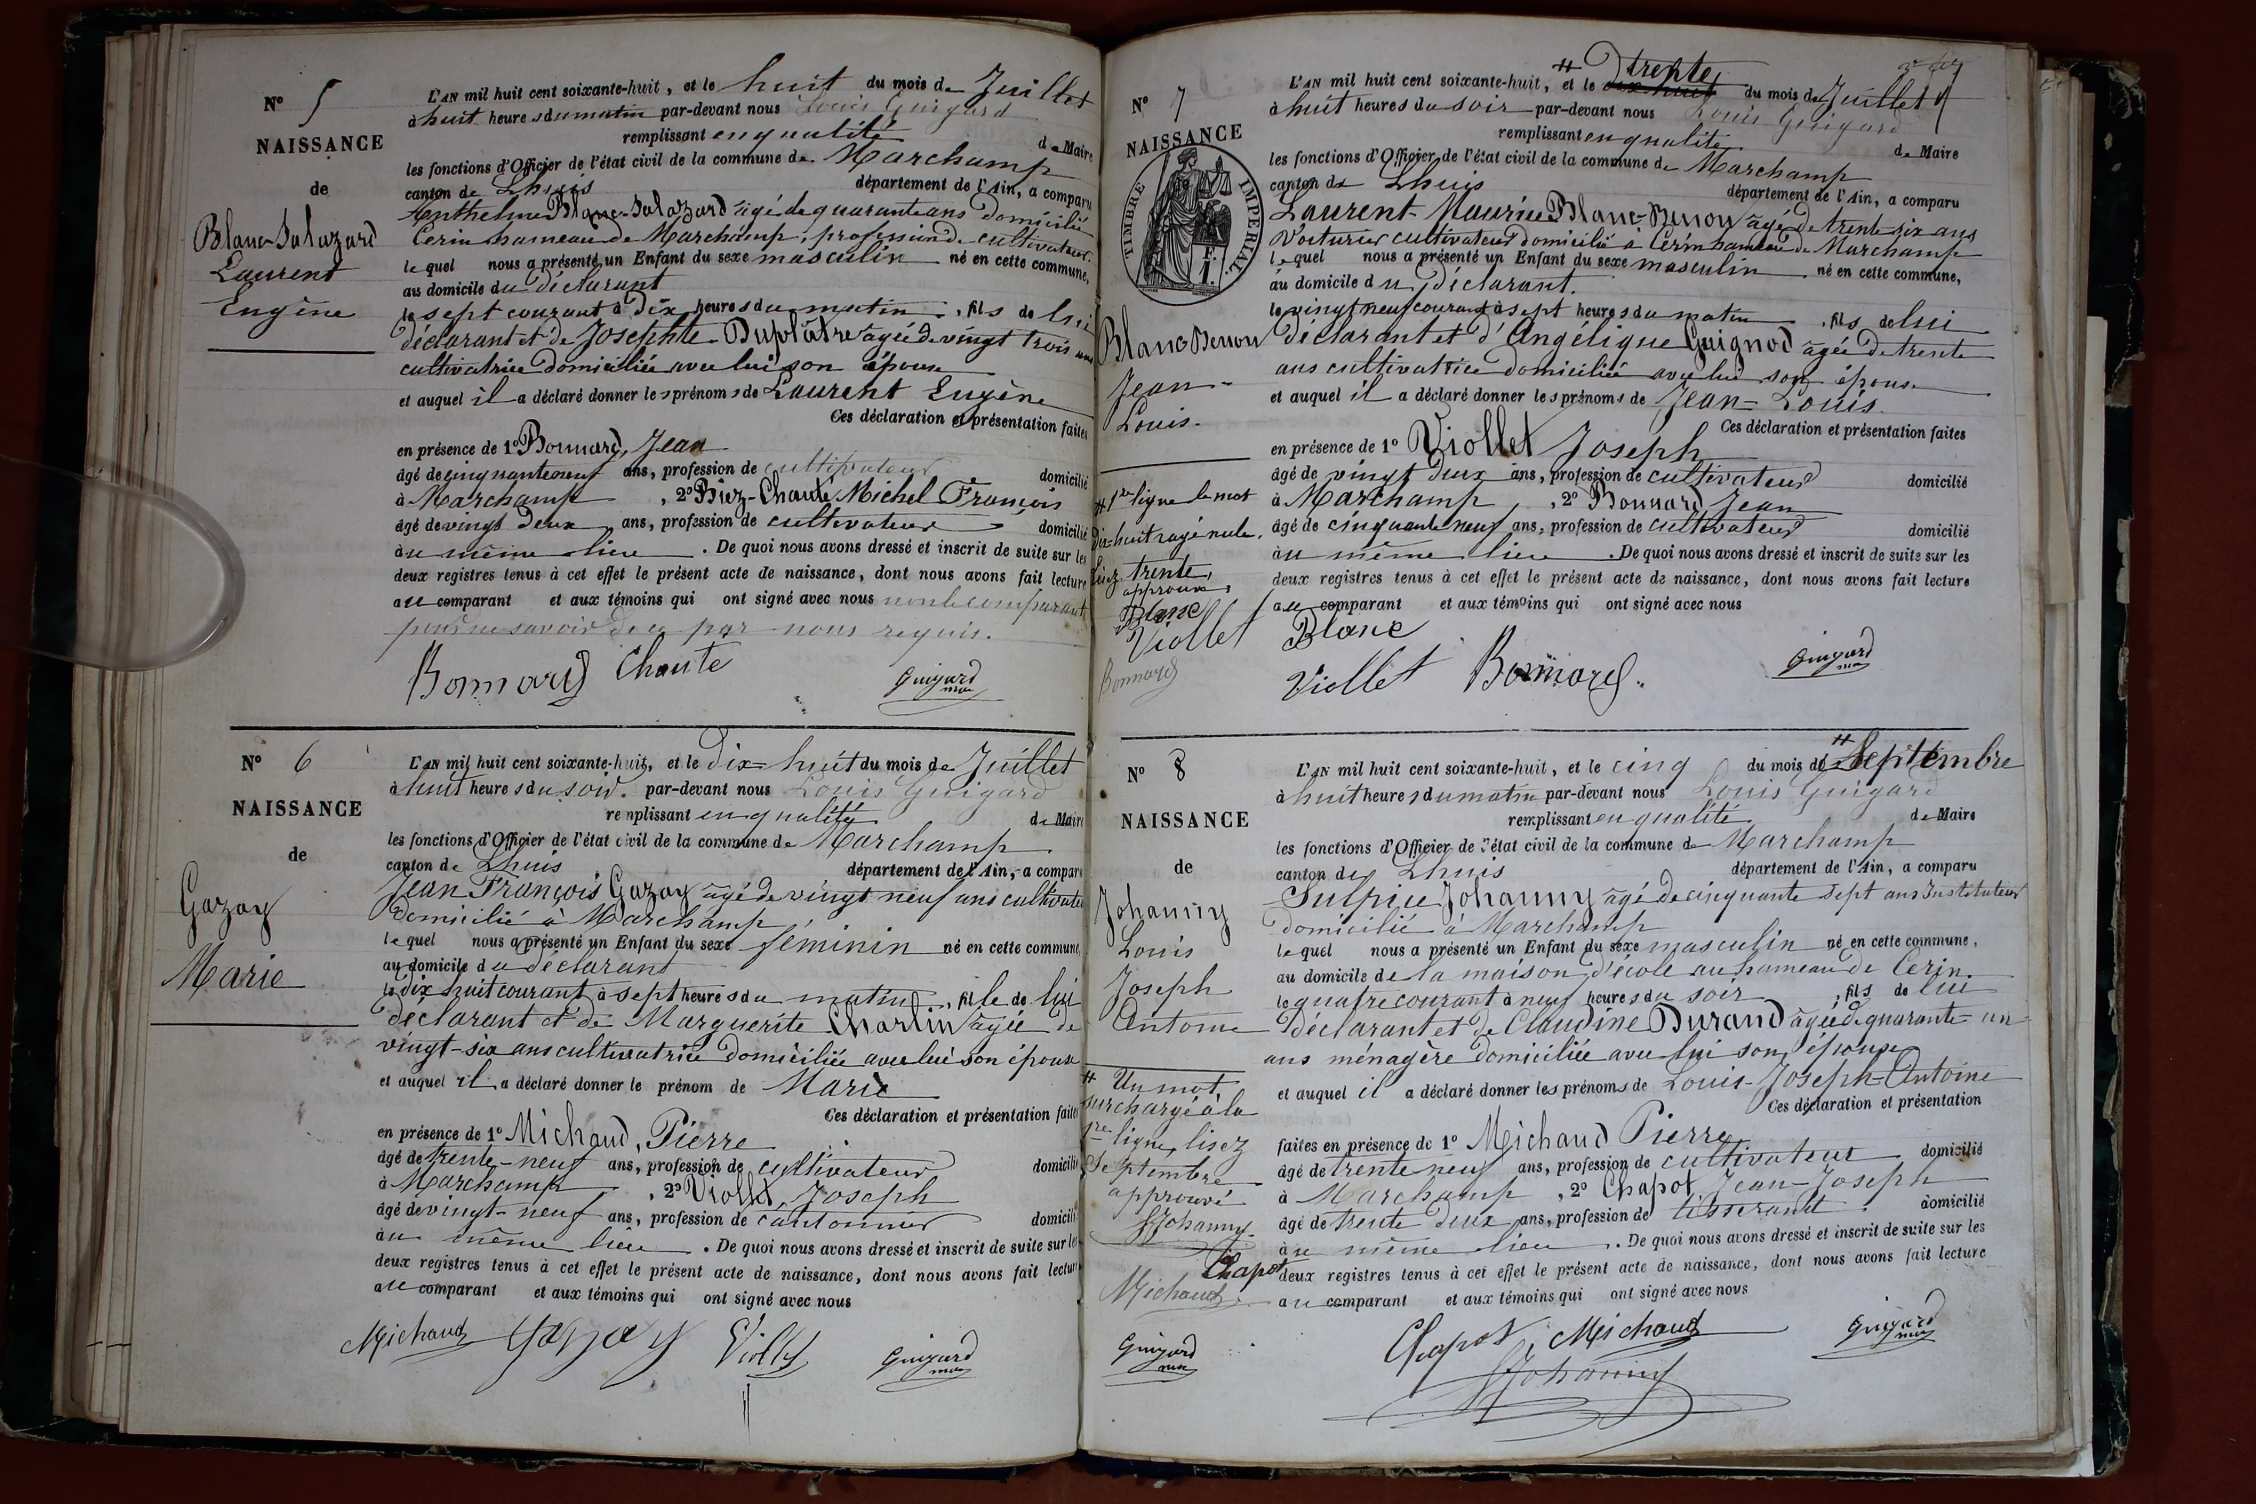 N° 5
NAISSANCE
de
Blanc-Salazard
Laurent
Eugène
L'AN mil huit cent soixante-huit, et le huit du mois de Juillet
à huit heures du matin par-devant nous Louis Guigard
remplissant en qualité de Maire
les fonctions d'Officier de l'état civil de la commune de Marchamp
canton de Lhuis département de l'Ain, a comparu
Anthelme Blanc-Salazard âgé de quarante ans domicilié
Cerin hameau de Marchamp, profession de cultivateur
lequel nous a présenté un Enfant du sexe masculin né en cette commune,
au domicile du déclarant
le sept courant à dix heures du matin, fils de lui
déclarant et de Josephte Dupolâtre âgée de vingt trois ans
cultivatrice domiciliée avec lui son épouse
et auquel il a déclaré donner les prénoms de Laurent Eugène
Ces déclaration et présentation faites
en présence de 1° Bonnard, Jean
âgé de cinquante neuf ans, profession de cultivateur domicilié
à Marchamp, 2° Biez-Chauté Michel François
âgé de vingt deux ans, profession de cultivateur domicilié
au même lieu. De quoi nous avons dressé et inscrit de suite sur les
deux registres tenus à cet effet le présent acte de naissance, dont nous avons fait lecture
au comparant et aux témoins qui ont signé avec nous non le comparant
pour ne savoir de ce par nous requis.
Bonnard Chaute Guigard
maire
N° 6
NAISSANCE
de
Gazay
Marie
L'AN mil huit cent soixante-huit, et le dix huit du mois de Juillet
à huit heures du soir. par-devant nous Louis Guigard
remplissant en qualité de Maire
les fonctions d'Officier de l'état civil de la commune de Marchamp
canton de Lhuis département de l'Ain, a comparu
Jean François Gazay âgé de vingt neuf ans cultivateur
domicilié à Marchamp
lequel nous a présenté un Enfant du sexe féminin né en cette commune,
au domicile du déclarant
le dix huit courant à sept heures du matin, fille de lui
déclarant et de Marguerite Charlin âgée de
vingt-six ans cultivatrice domiciliée avec lui son épouse
et auquel il a déclaré donner le prénom de Marie
Ces déclaration et présentation faites
en présence de 1° Michaud, Pierre
âgé de trente-neuf ans, profession de cultivateur domicilié
à Marchamp, 2° Viollet, Joseph
âgé de vingt-neuf ans, profession de cantonnier domicilié
au même lieu. De quoi nous avons dressé et inscrit de suite sur les
deux registres tenus à cet effet le présent acte de naissance, dont nous avons fait lecture
au comparant et aux témoins qui ont signé avec nous
Michaud Gazay Viollet Guigard
maire
N° 7
NAISSANCE
TIMBRE IMPERIAL.
Blanc-Benon
Jean-
Louis.
# 1re ligne le mot
dix-huit rayé nul.
lisez trente,
approuvé
Blanc
Viollet
Bonnard
# trente
L'AN mil huit cent soixante-huit, et le dix huit du mois de Juillet
à huit heures du soir par-devant nous Louis Guigard
remplissant en qualité de Maire
les fonctions d'Officier de l'état civil de la commune de Marchamp
canton de Lhuis département de l'Ain, a comparu
Laurent-Maurice Blanc-Benon âgé de trente-six ans
Voiturier cultivateur domicilié à Cerin hameau de Marchamp
lequel nous a présenté un Enfant du sexe masculin né en cette commune,
au domicile du déclarant.
le vingt neuf courant à sept heures du matin, fils de lui
déclarant et d'Angélique Guignod âgée de trente
ans cultivatrice domiciliée avec lui son épouse
et auquel il a déclaré donner les prénoms de Jean-Louis.
Ces déclaration et présentation faites
en présence de 1° Viollet Joseph
âgé de vingt deux ans, profession de cultivateur domicilié
à Marchamp, 2° Bonnard Jean
âgé de cinquante neuf ans, profession de cultivateur domicilié
au même lieu. De quoi nous avons dressé et inscrit de suite sur les
deux registres tenus à cet effet le présent acte de naissance, dont nous avons fait lecture
au comparant et aux témoins qui ont signé avec nous
Blanc
Viollet Bonnard Guigard
maire
N° 8
NAISSANCE
de
Johanny
Louis
Joseph
Antoine
# Un mot
surchargé à la
1re ligne, lisez
Septembre
approuvé
SJohanny
Chapot
Michaud
Guigard
maire
L'AN mil huit cent soixante-huit, et le cinq du mois de # Septembre
à huit heures du matin par-devant nous Louis Guigard
remplissant en qualité de Maire
les fonctions d'Officier de l'état civil de la commune de Marchamp
canton de Lhuis département de l'Ain, a comparu
Sulpice Johanny âgé de cinquante sept ans Instituteur
domicilié à Marchamp
lequel nous a présenté un Enfant du sexe masculin né en cette commune,
au domicile de la maison d'école au hameau de Cerin.
le quatre courant à neuf heures du soir, fils de lui
déclarant et de Claudine Durand âgée de quarante-un
ans ménagère domiciliée avec lui son épouse
et auquel il a déclaré donner les prénoms de Louis-Joseph-Antoine
Ces déclaration et présentation
faites en présence de 1° Michaud Pierre
âgé de trente neuf ans, profession de cultivateur domicilié
à Marchamp, 2° Chapot, Jean-Joseph
âgé de trente deux ans, profession de tisserant. domicilié
au même lieu. De quoi nous avons dressé et inscrit de suite sur les
deux registres tenus à cet effet le présent acte de naissance, dont nous avons fait lecture
au comparant et aux témoins qui ont signé avec nous
Chapot, Michaud Guigard
maire
SJohanny